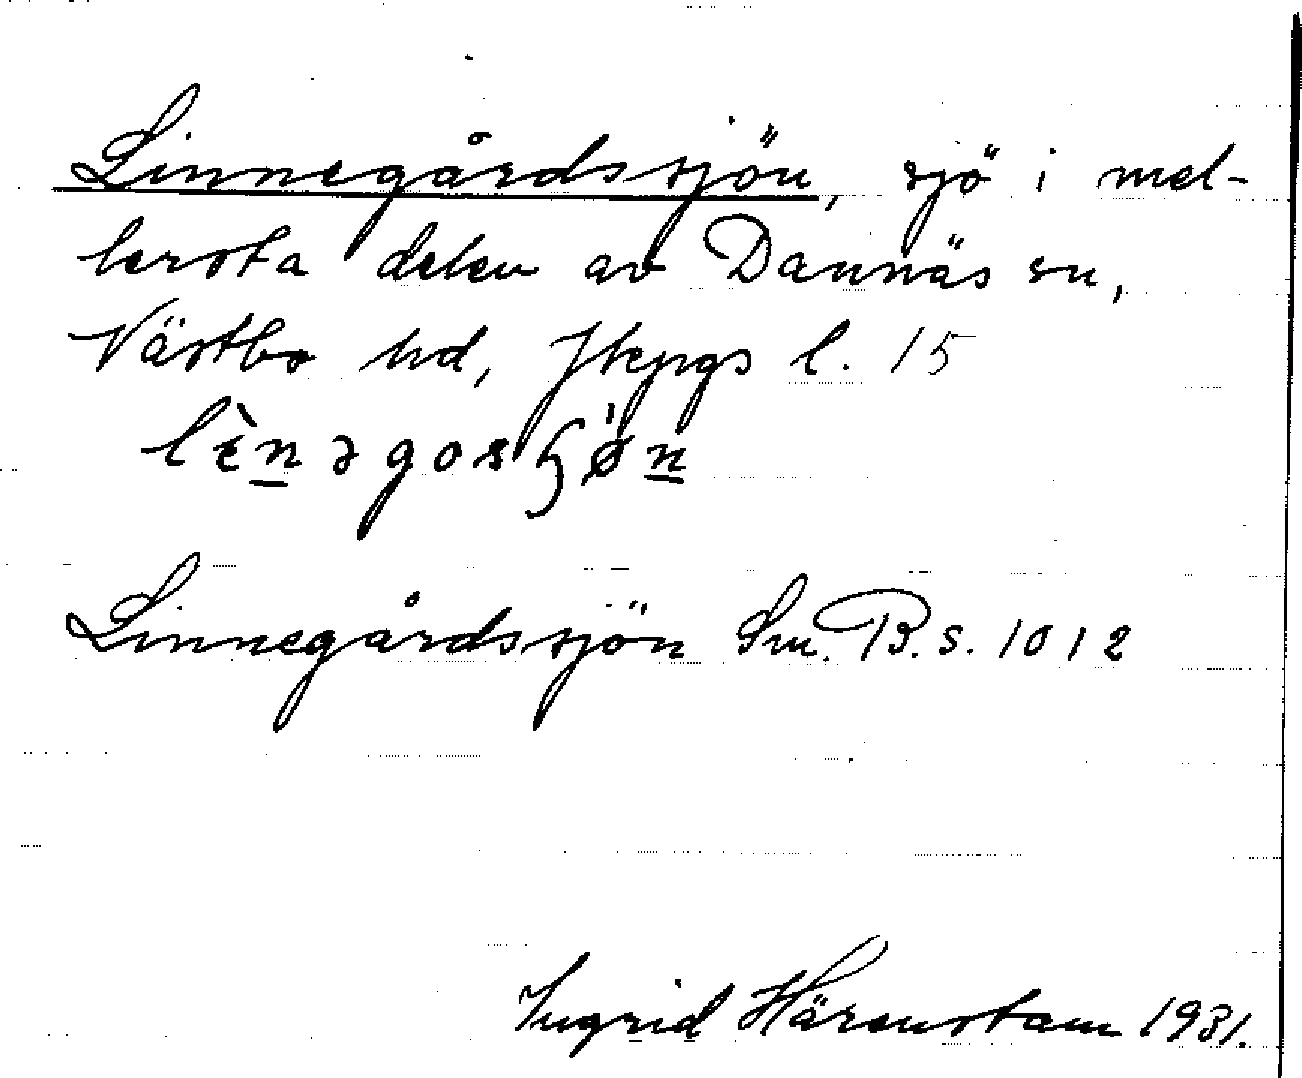 Linnegårdssjön, sjö i mel-
lersta delen av Dannäs sn,
Västbo hd, Jkpgs l. 15
lènəgosɧø̀n
Linnegårdssjön Sm. B. s. 1012
Ingrid Härenstam 1931.